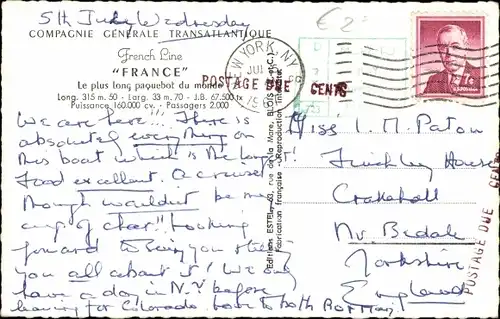 5th July Wednesday
COMPAGNIE GÉNÉRALE TRANSATLANTIQUE
French Line
"FRANCE"
Le plus long paquebot du monde
Long. 315 m. 50 - Larg. 33 m. 70 - J.B. 67.500 tx
Puissance 160.000 cv. - Passagers 2.000
We are here!!! There is
absolutely everything on
this boat which is the largest!
Food excellent. A cruise
though wouldn't be my
"cup of chaa"! Looking
forward to seeing you & telling
you all about it! We only
have a day in N.Y before
leaving for Colorado love to both
€ 2
NEW YORK, N.Y.
JUL
POSTAGE DUE CENTS
Miss M. Paton
Finchley House
Crakehall
Nr. Bedale
Yorkshire
England
POSTAGE DUE CENTS
Fabrication française - Reproduction interdite